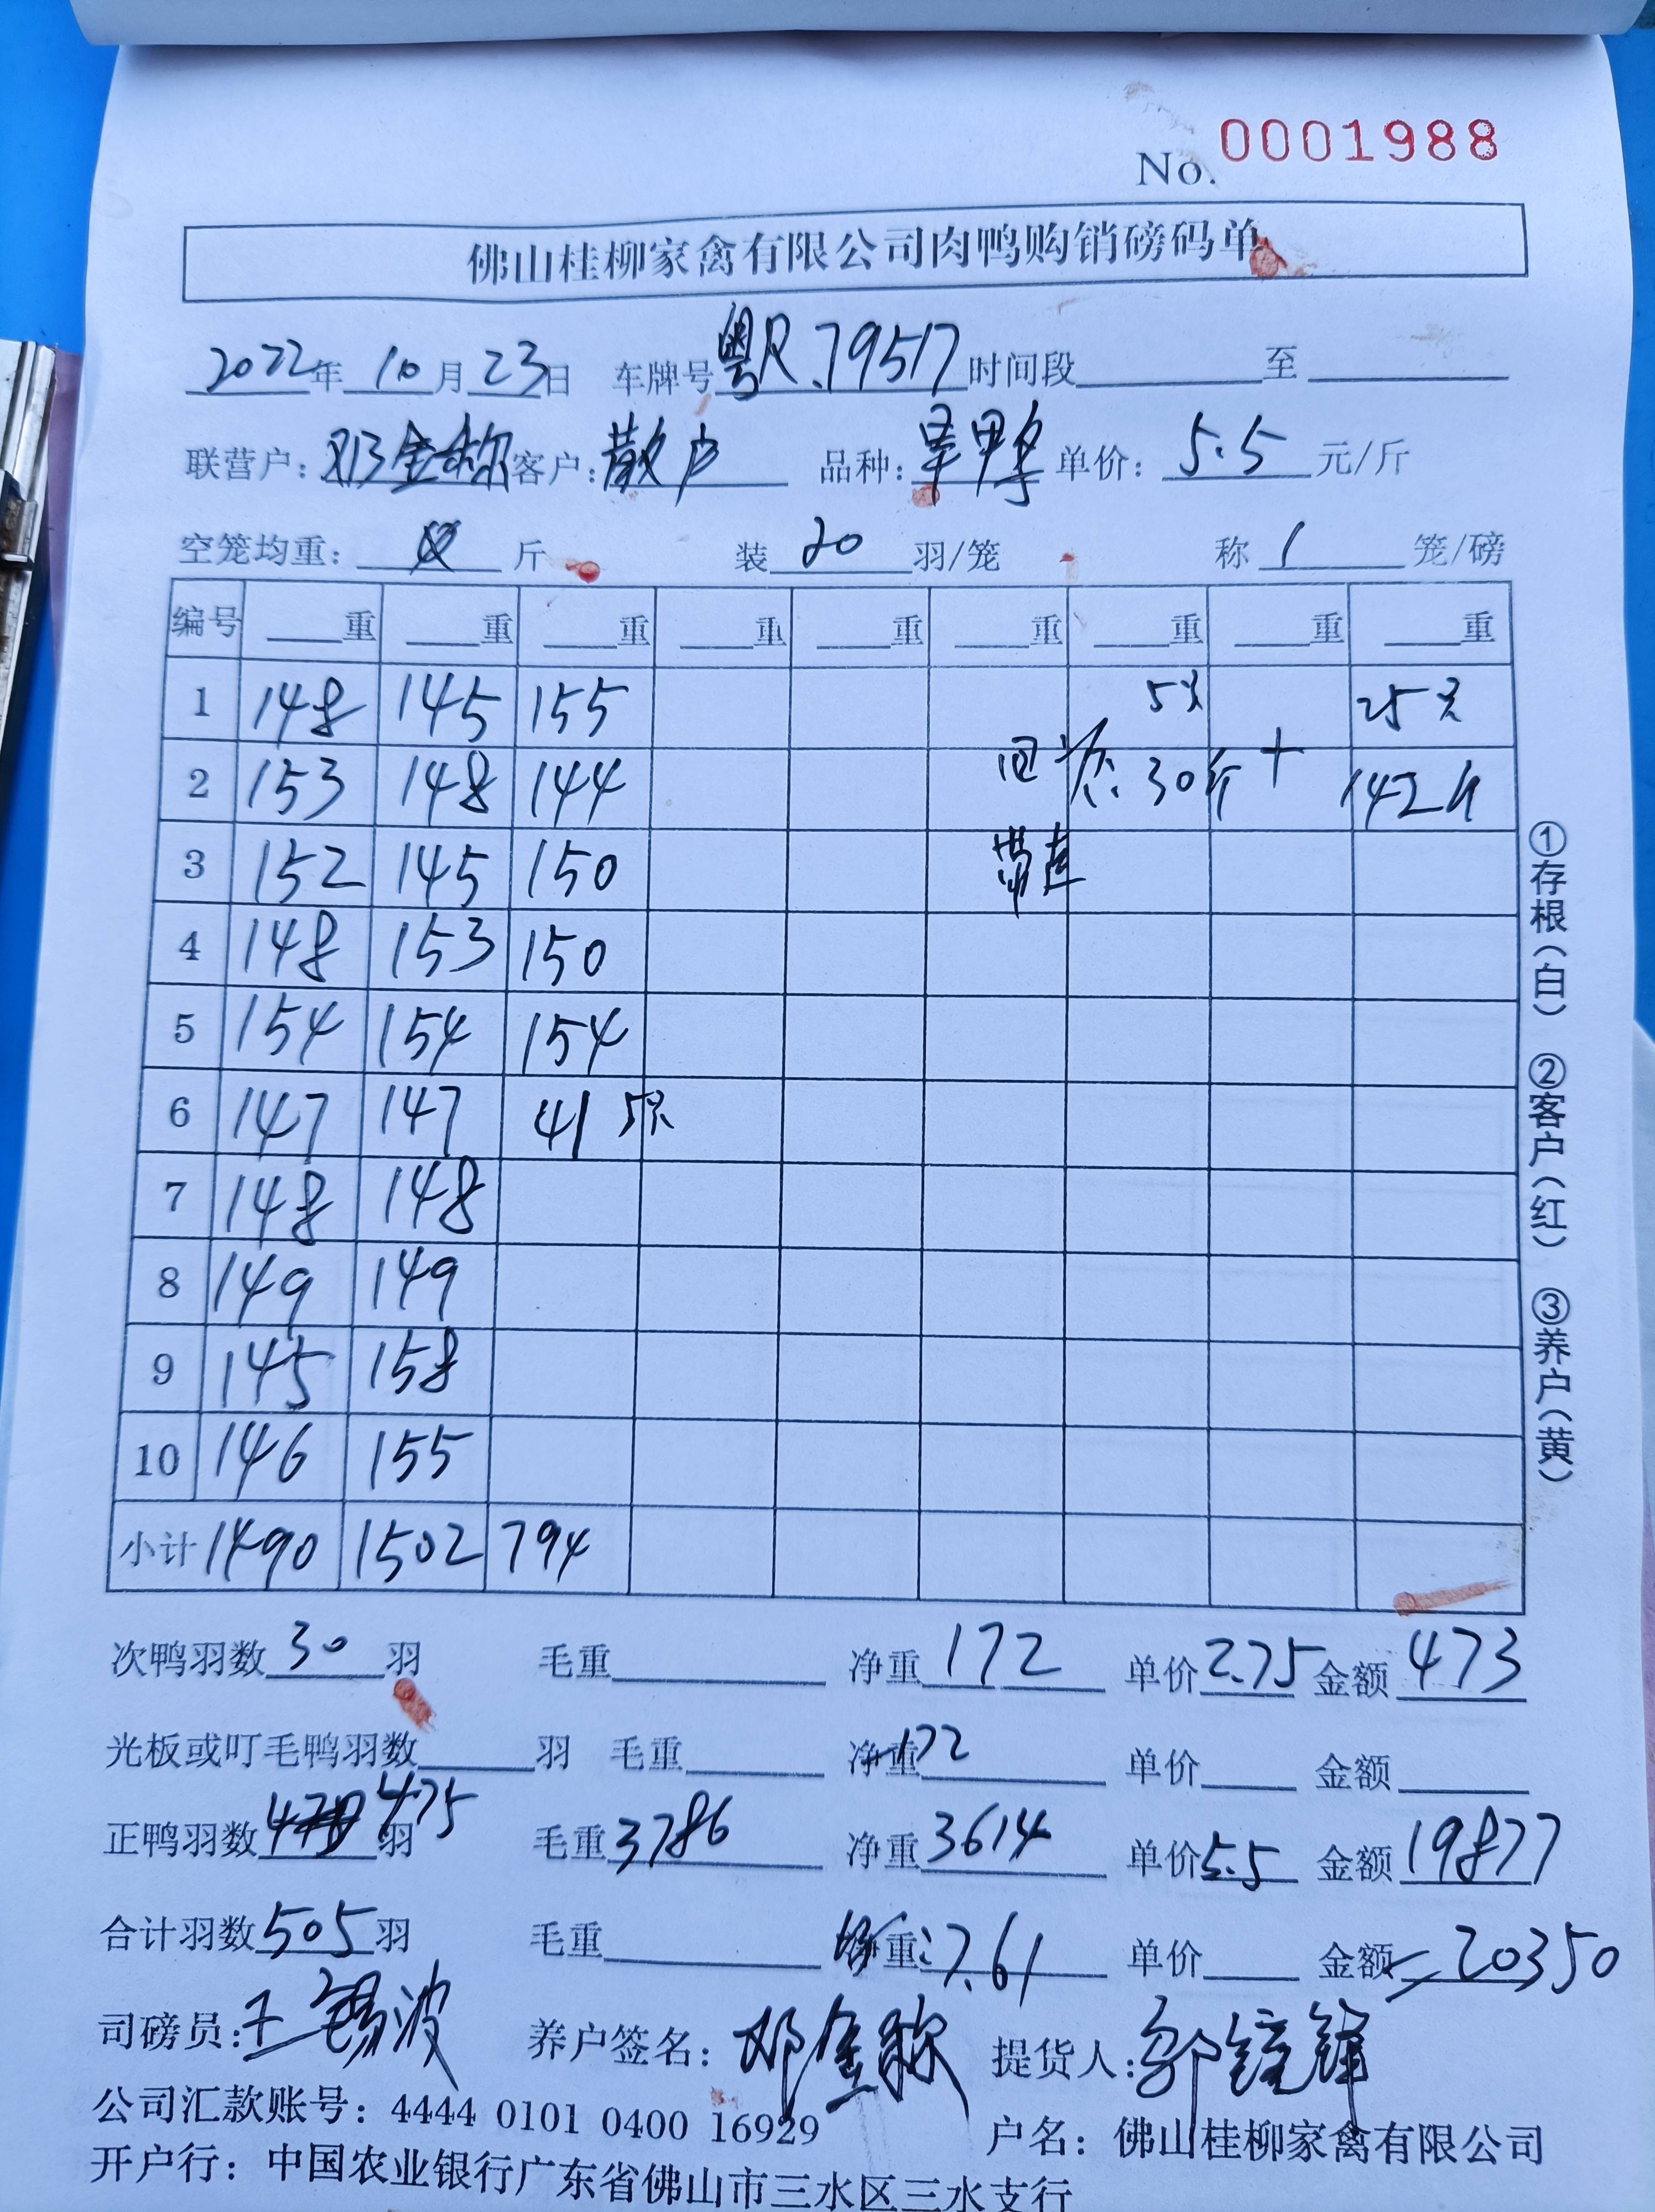 No. 0001988
佛山桂柳家禽有限公司肉鸭购销磅码单
2022年 10月 23日 车牌号 粤R.79517 时间段 至
联营户: 邓金称 客户: 散户 品种: 旱鸭 单价: 5.5 元/斤
空笼均重: 斤 装 20 羽/笼 称 1 笼/磅
编号 重 重 重 重 重 重 重 重 重
1 148 145 155 5只 25只
2 153 148 144 30斤 + 142斤
3 152 145 150
4 148 153 150
5 154 154 154
6 147 147 41 5只
7 148 148
8 149 149
9 145 158
10 146 155
小计 1490 1502 794
①存根(白) ②客户(红) ③养户(黄)
次鸭羽数 30 羽 毛重 净重 172 单价 2.75 金额 473
光板或叮毛鸭羽数 羽 毛重 净重 -172 单价 金额
正鸭羽数 475 羽 毛重 3786 净重 3614 单价 5.5 金额 19877
合计羽数 505 羽 毛重 均重: 7.61 单价 金额 = 20350
司磅员: 王锡波 养户签名: 邓金称 提货人: 邹镜锋
公司汇款账号: 4444 0101 0400 16929 户名: 佛山桂柳家禽有限公司
开户行: 中国农业银行广东省佛山市三水区三水支行